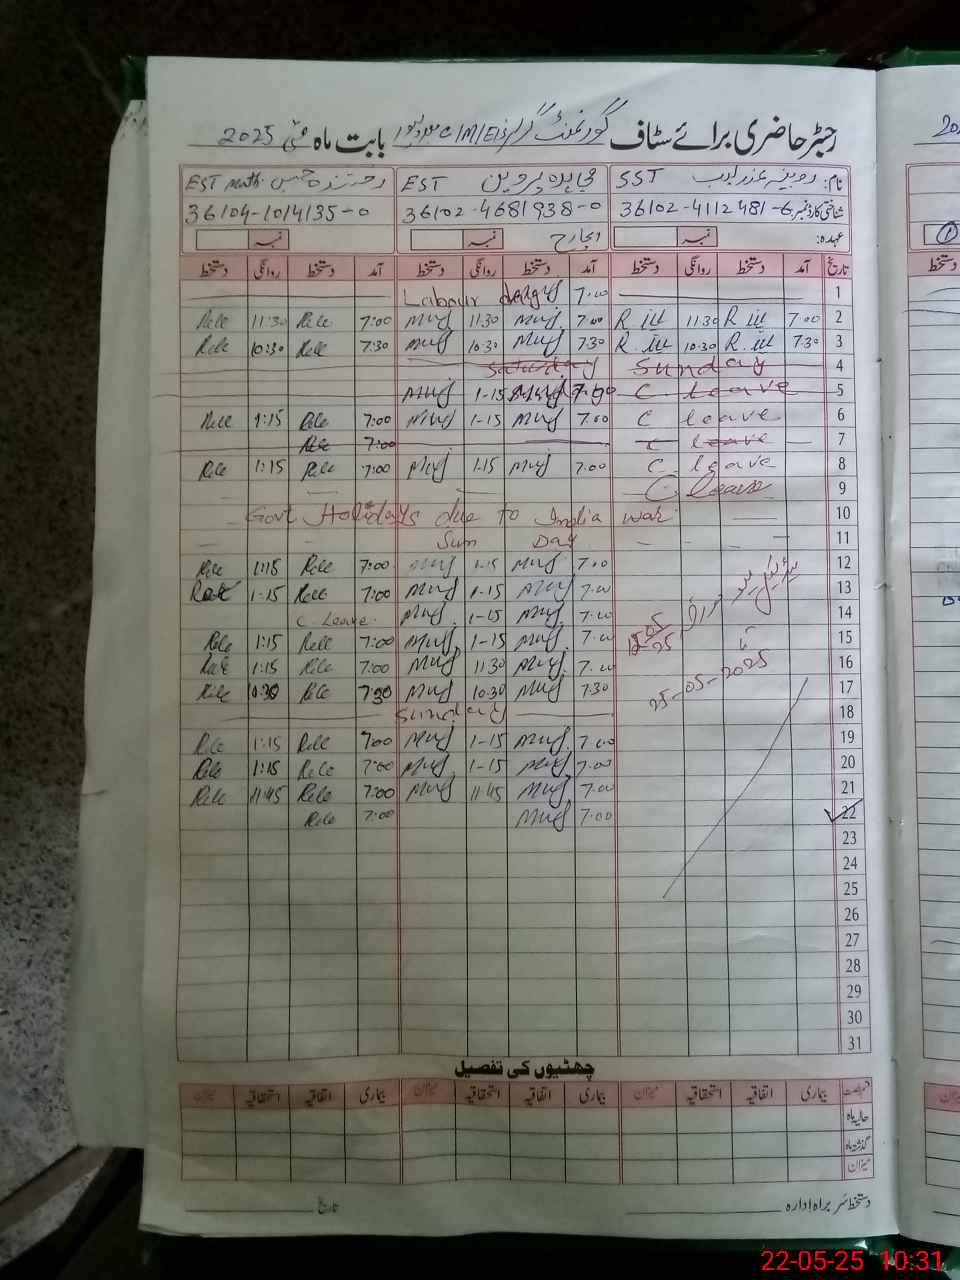 رجسٹر حاضری برائے سٹاف گورنمنٹ گرلز C/M/E/S بابت ماہ مئی 2025
نام: روبینہ عندلیب SST مجاہدہ پروین EST EST Math.
شناختی کارڈ نمبر 36102-4112481-6 36102-4681938-0 36104-1014135-0
عہدہ: نمبر انچارج نمبر نمبر
تاریخ آمد دستخط روانگی دستخط آمد دستخط روانگی دستخط آمد دستخط روانگی دستخط
Labour 7.00 1
Rele 11:30 Rele 7:00 Muj 11.30 Muj 7.00 R. 11.30 R. 7.00 2
Rele 10:30 Rele 7.30 Muj 10.30 Muj 7.30 R. 10.30 R. 7.30 3
Saturday Sunday 4
Muj 1-15 Muj 7.00 C leave 5
Rele 1:15 Rele 7:00 Muj 1-15 Muj 7.00 C leave 6
Rele 7:00 C leave 7
Rele 1:15 Rele 7:00 Muj 1.15 Muj 7.00 C. leave 8
C leave 9
Govt Holidays due to India war 10
Sun Day 11
Rele 1:15 Rele 7:00 Muj 1-15 Muj 7.00 12
Rele 1-15 Rele 7:00 Muj 1-15 Muj 7.00 13
C. Leave. Muj 1-15 Muj 7.00 14
Rele 1:15 Rele 7:00 Muj 1-15 Muj 7.00 15
Rele 1:15 Rele 7:00 Muj 11.30 Muj 7.00 16
تا
25-05-2025
Rele 10:30 Rele 7:30 Muj 10.30 Muj 7.30 17
Sunday 18
Rele 1:15 Rele 7:00 Muj 1-15 Muj 7.00 19
Rele 1:15 Rele 7:00 Muj 1-15 Muj 7.00 20
Rele 11:45 Rele 7:00 Muj 11.45 Muj 7.00 21
Rele 7:00 Muj 7.00 22
23
24
25
26
27
28
29
30
31
چھٹیوں کی تفصیل
رخصت بیماری اتفاقیہ استحقاقیہ میزان بیماری اتفاقیہ استحقاقیہ میزان بیماری اتفاقیہ استحقاقیہ میزان
حالیہ ماہ
گذشتہ ماہ
میزان
دستخط سربراہ ادارہ تاریخ
22-05-25 10:31